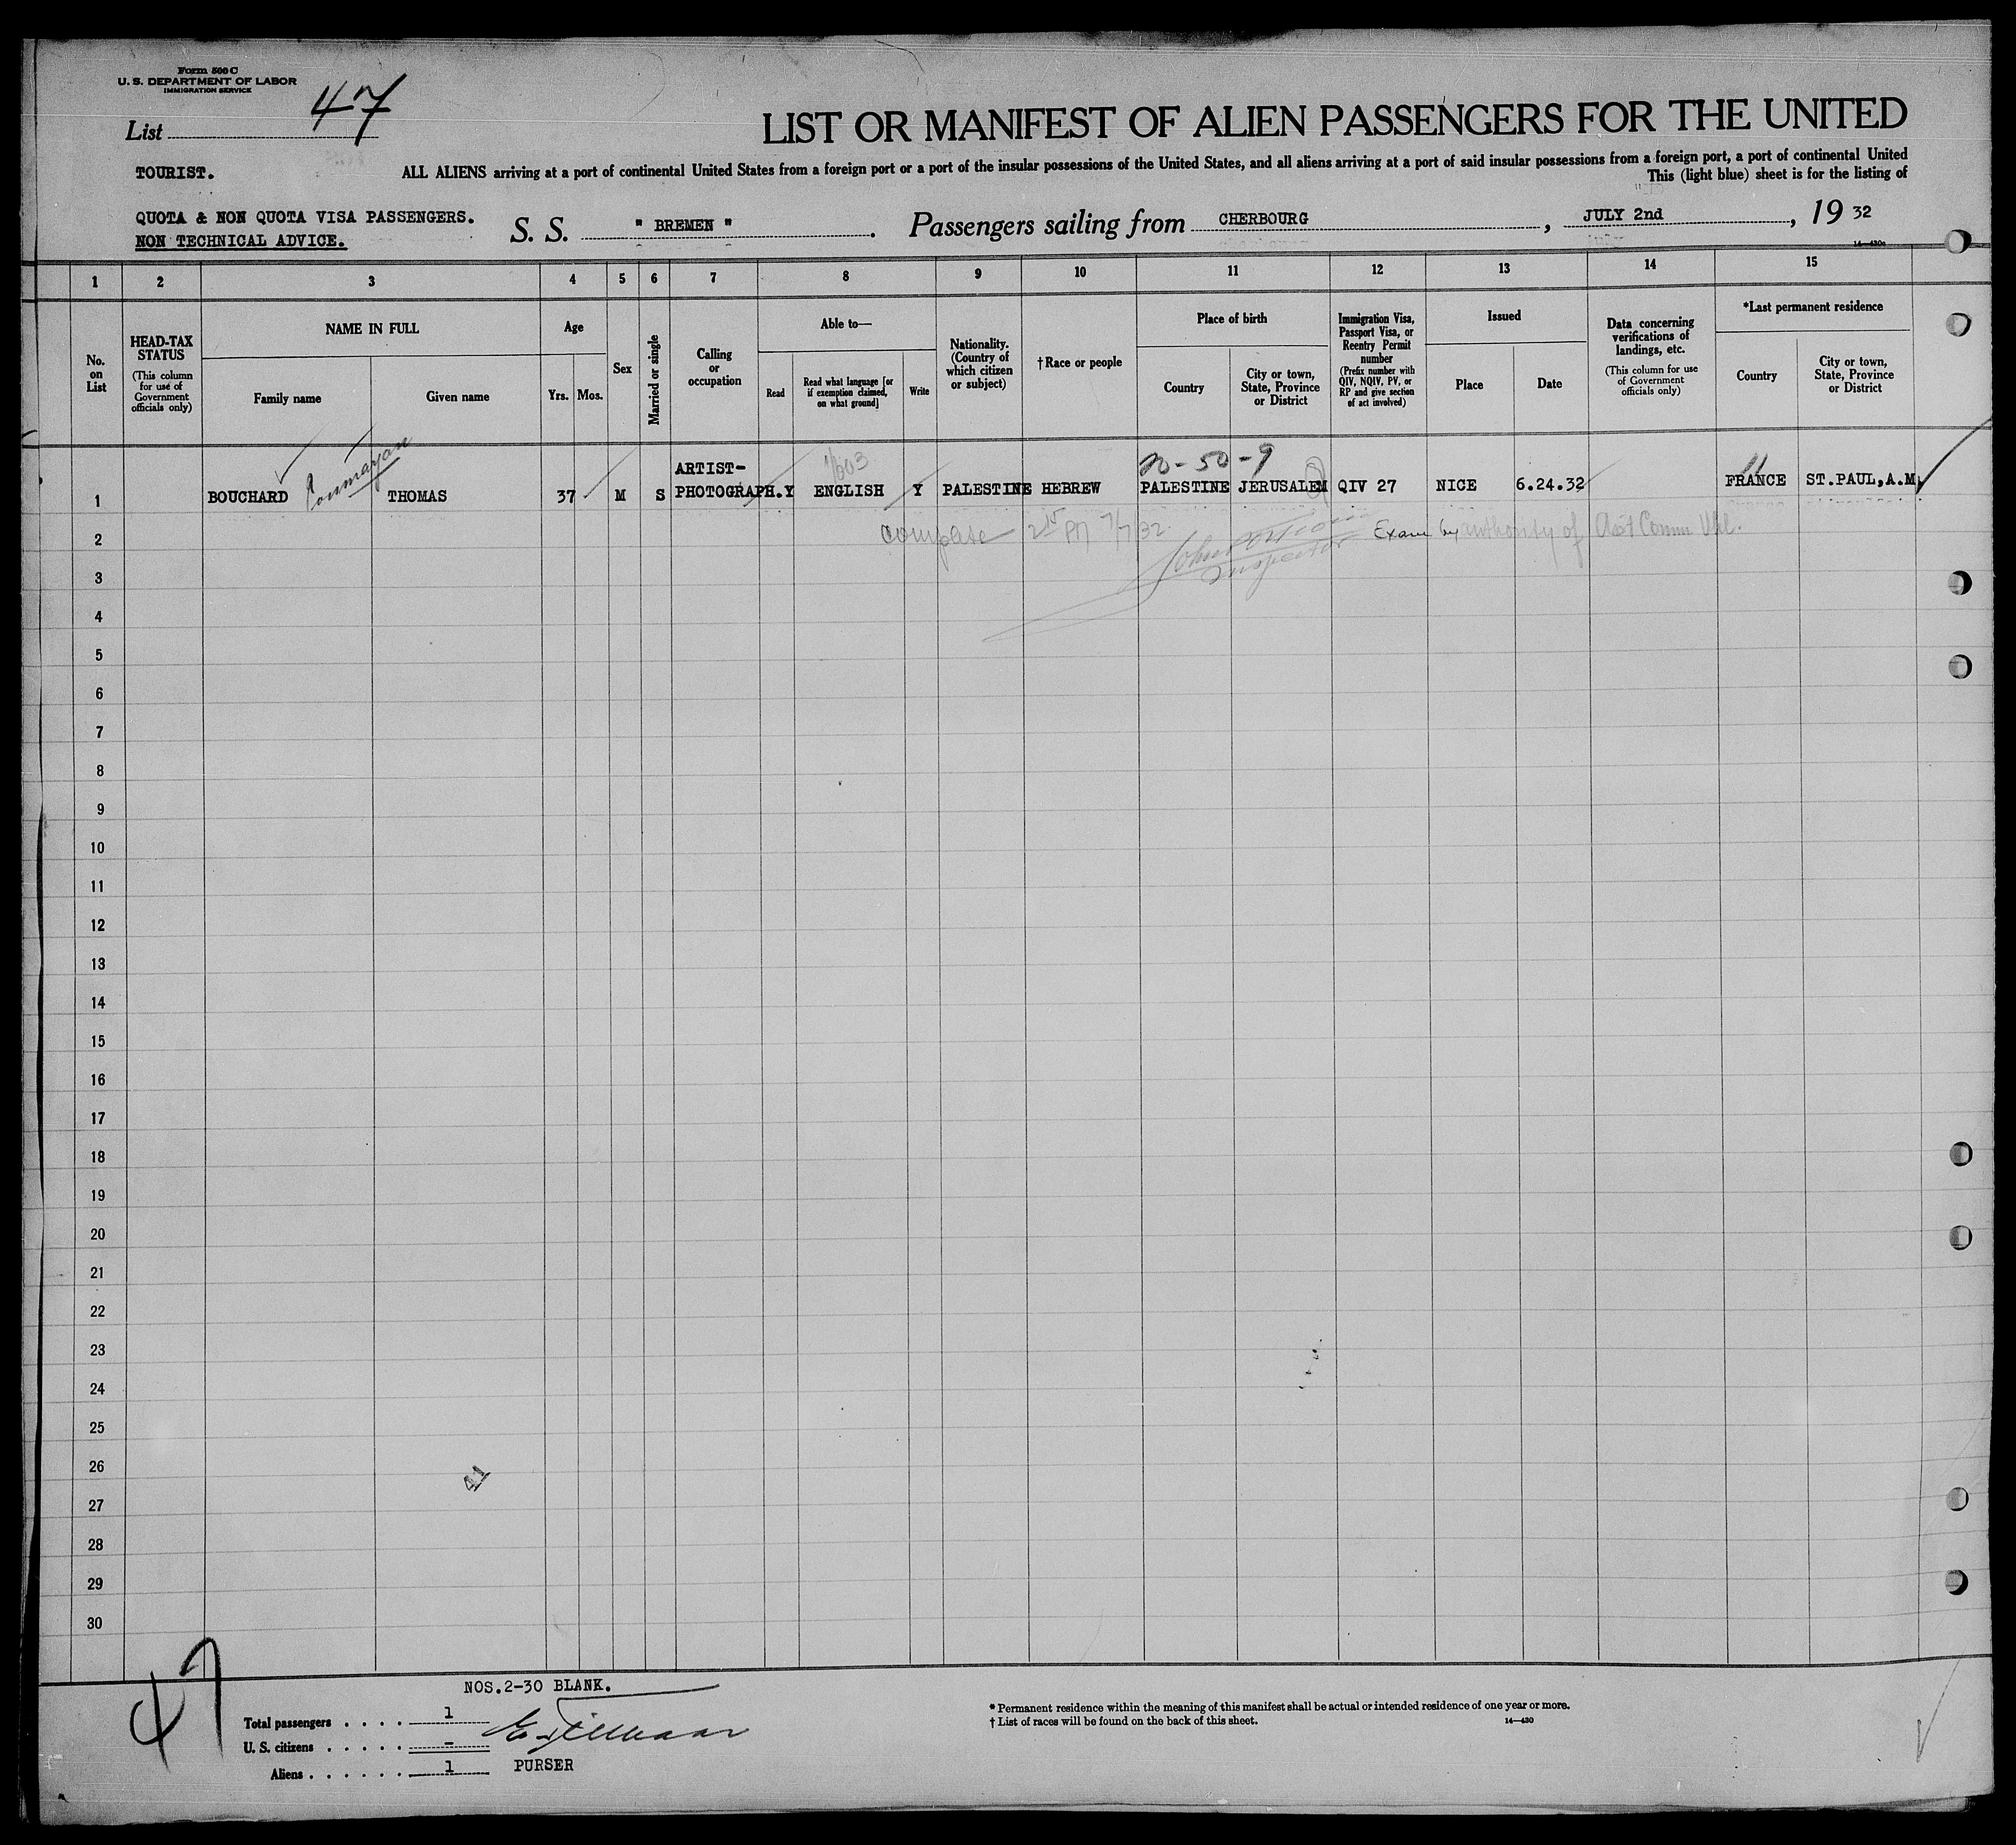 Form 500 C
U. S. DEPARTMENT OF LABOR
IMMIGRATION SERVICE
List 47
LIST OR MANIFEST OF ALIEN PASSENGERS FOR THE UNITED
TOURIST.
ALL ALIENS arriving at a port of continental United States from a foreign port or a port of the insular possessions of the United States, and all aliens arriving at a port of said insular possessions from a foreign port, a port of continental United
This (light blue) sheet is for the listing of
QUOTA & NON QUOTA VISA PASSENGERS.
NON TECHNICAL ADVICE.
S. S. " BREMEN ". Passengers sailing from CHERBOURG, JULY 2nd, 19 32
14—430c
1 2 3 4 5 6 7 8 9 10 11 12 13 14 15
No. on List
HEAD-TAX STATUS
(This column for use of Government officials only)
NAME IN FULL
Family name
Given name
Age
Yrs.
Mos.
Sex
Married or single
Calling or occupation
Able to—
Read
Read what language [or if exemption claimed, on what ground]
Write
Nationality. (Country of which citizen or subject)
†Race or people
Place of birth
Country
City or town, State, Province or District
Immigration Visa, Passport Visa, or Reentry Permit number
(Prefix number with QIV, NQIV, PV, or RP and give section of act involved)
Issued
Place
Date
Data concerning verifications of landings, etc.
(This column for use of Government officials only)
*Last permanent residence
Country
City or town, State, Province or District
20-50-9
1 BOUCHARD THOMAS 37 M S ARTIST-PHOTOGRAPH. Y ENGLISH Y PALESTINE HEBREW PALESTINE JERUSALEM QIV 27 NICE 6.24.32 FRANCE ST.PAUL,A.M.
2 Exam by authority of
Inspector
3
4
5
6
7
8
9
10
11
12
13
14
15
16
17
18
19
20
21
22
23
24
25
26
41
27
28
29
30
47
NOS.2-30 BLANK.
Total passengers . . . . 1
U. S. citizens . . . . . -
Aliens . . . . . . 1
PURSER
* Permanent residence within the meaning of this manifest shall be actual or intended residence of one year or more.
† List of races will be found on the back of this sheet.
14—430